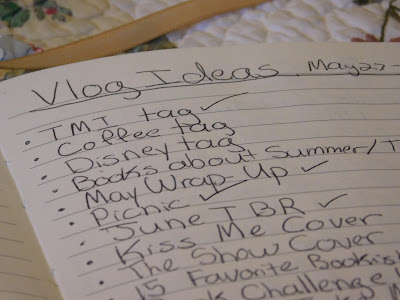 Vlog Ideas May 27-
• TMI tag ✓
• Coffee tag
• Disney tag
• Books about Summer/
• May Wrap-Up ✓
• Picnic ✓
• June TBR ✓
• Kiss Me Cover
• The Show Cover
• 15 Favorite Bookish
Challenge